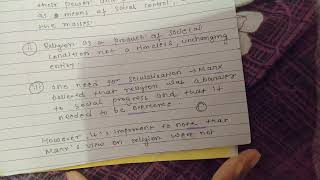 their power and
as a means of social control,
the masses.
(ii) Religion as a product of societal
condition not a timeless, unchanging
entity.
(iii) The need for socialization → Marx
believed that religion was a barrier
to social progress and that it
needed to be overcome.
However, it's important to note that
Marx's view on religion were not